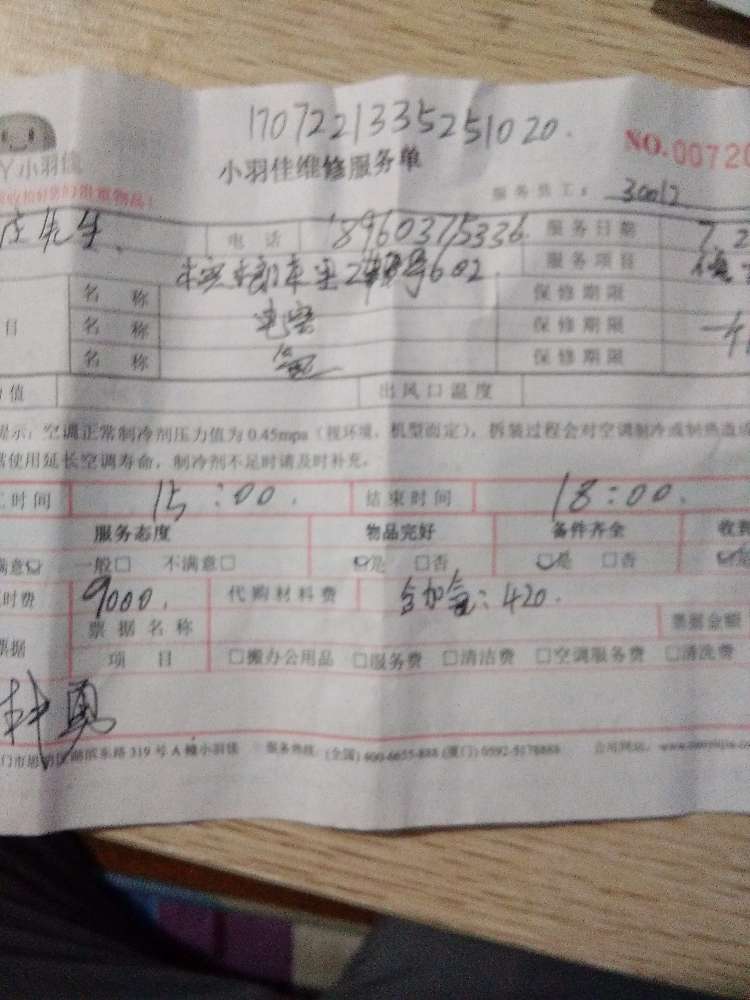 1707221335251020.
小羽佳
小羽佳维修服务单
NO.00720
服务员工： 30012
先生 电 话 18960375336 服务日期 7.2
602 服务项目
目 名 称 保修期限
名 称 保修期限
名 称 保修期限
值 出风口温度
提示：空调正常制冷剂压力值为0.45mpa（视环境，机型而定），拆装过程会对空调制冷或制热造成
常使用延长空调寿命，制冷剂不足时请及时补充。
工时间 15:00. 结束时间 18:00.
服务态度 物品完好 备件齐全 收费
满意 一般□ 不满意□ 是 □否 是 □否 是
时费 9000. 代购材料费 含加氟:420.
票据 票据名称 票据金额
项 目 □搬办公用品 □服务费 □清洁费 □空调服务费 □清洗费
林勇
门市思明区湖滨东路319号A幢小羽佳 服务热线：(全国)400-6655-888 (厦门)0592-5178888 公司网站：